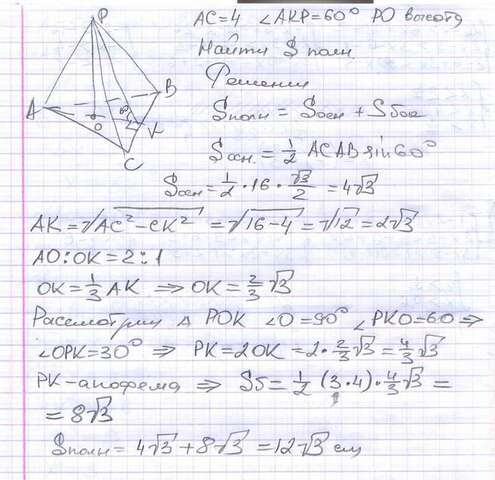 P
A
B
O
K
C
AC=4 ∠AKP=60° PO высота
Найти S полн
Решение
Sполн = Sосн + Sбок
Sосн. = 1/2 AC AB sin60°
Sосн = 1/2 · 16 · √3/2 = 4√3
AK = √AC² - CK² = √16-4 = √12 = 2√3
AO:OK = 2:1
OK = 1/3 AK ⇒ OK = 2/3 √3
Рассмотрим Δ POK ∠O=90° ∠PKO=60 ⇒
∠OPK=30° ⇒ PK=2OK = 2·2/3√3 = 4/3√3
PK-апофема ⇒ Sб = 1/2 (3·4)·4/3√3 =
= 8√3
Sполн = 4√3 + 8√3 = 12√3 см